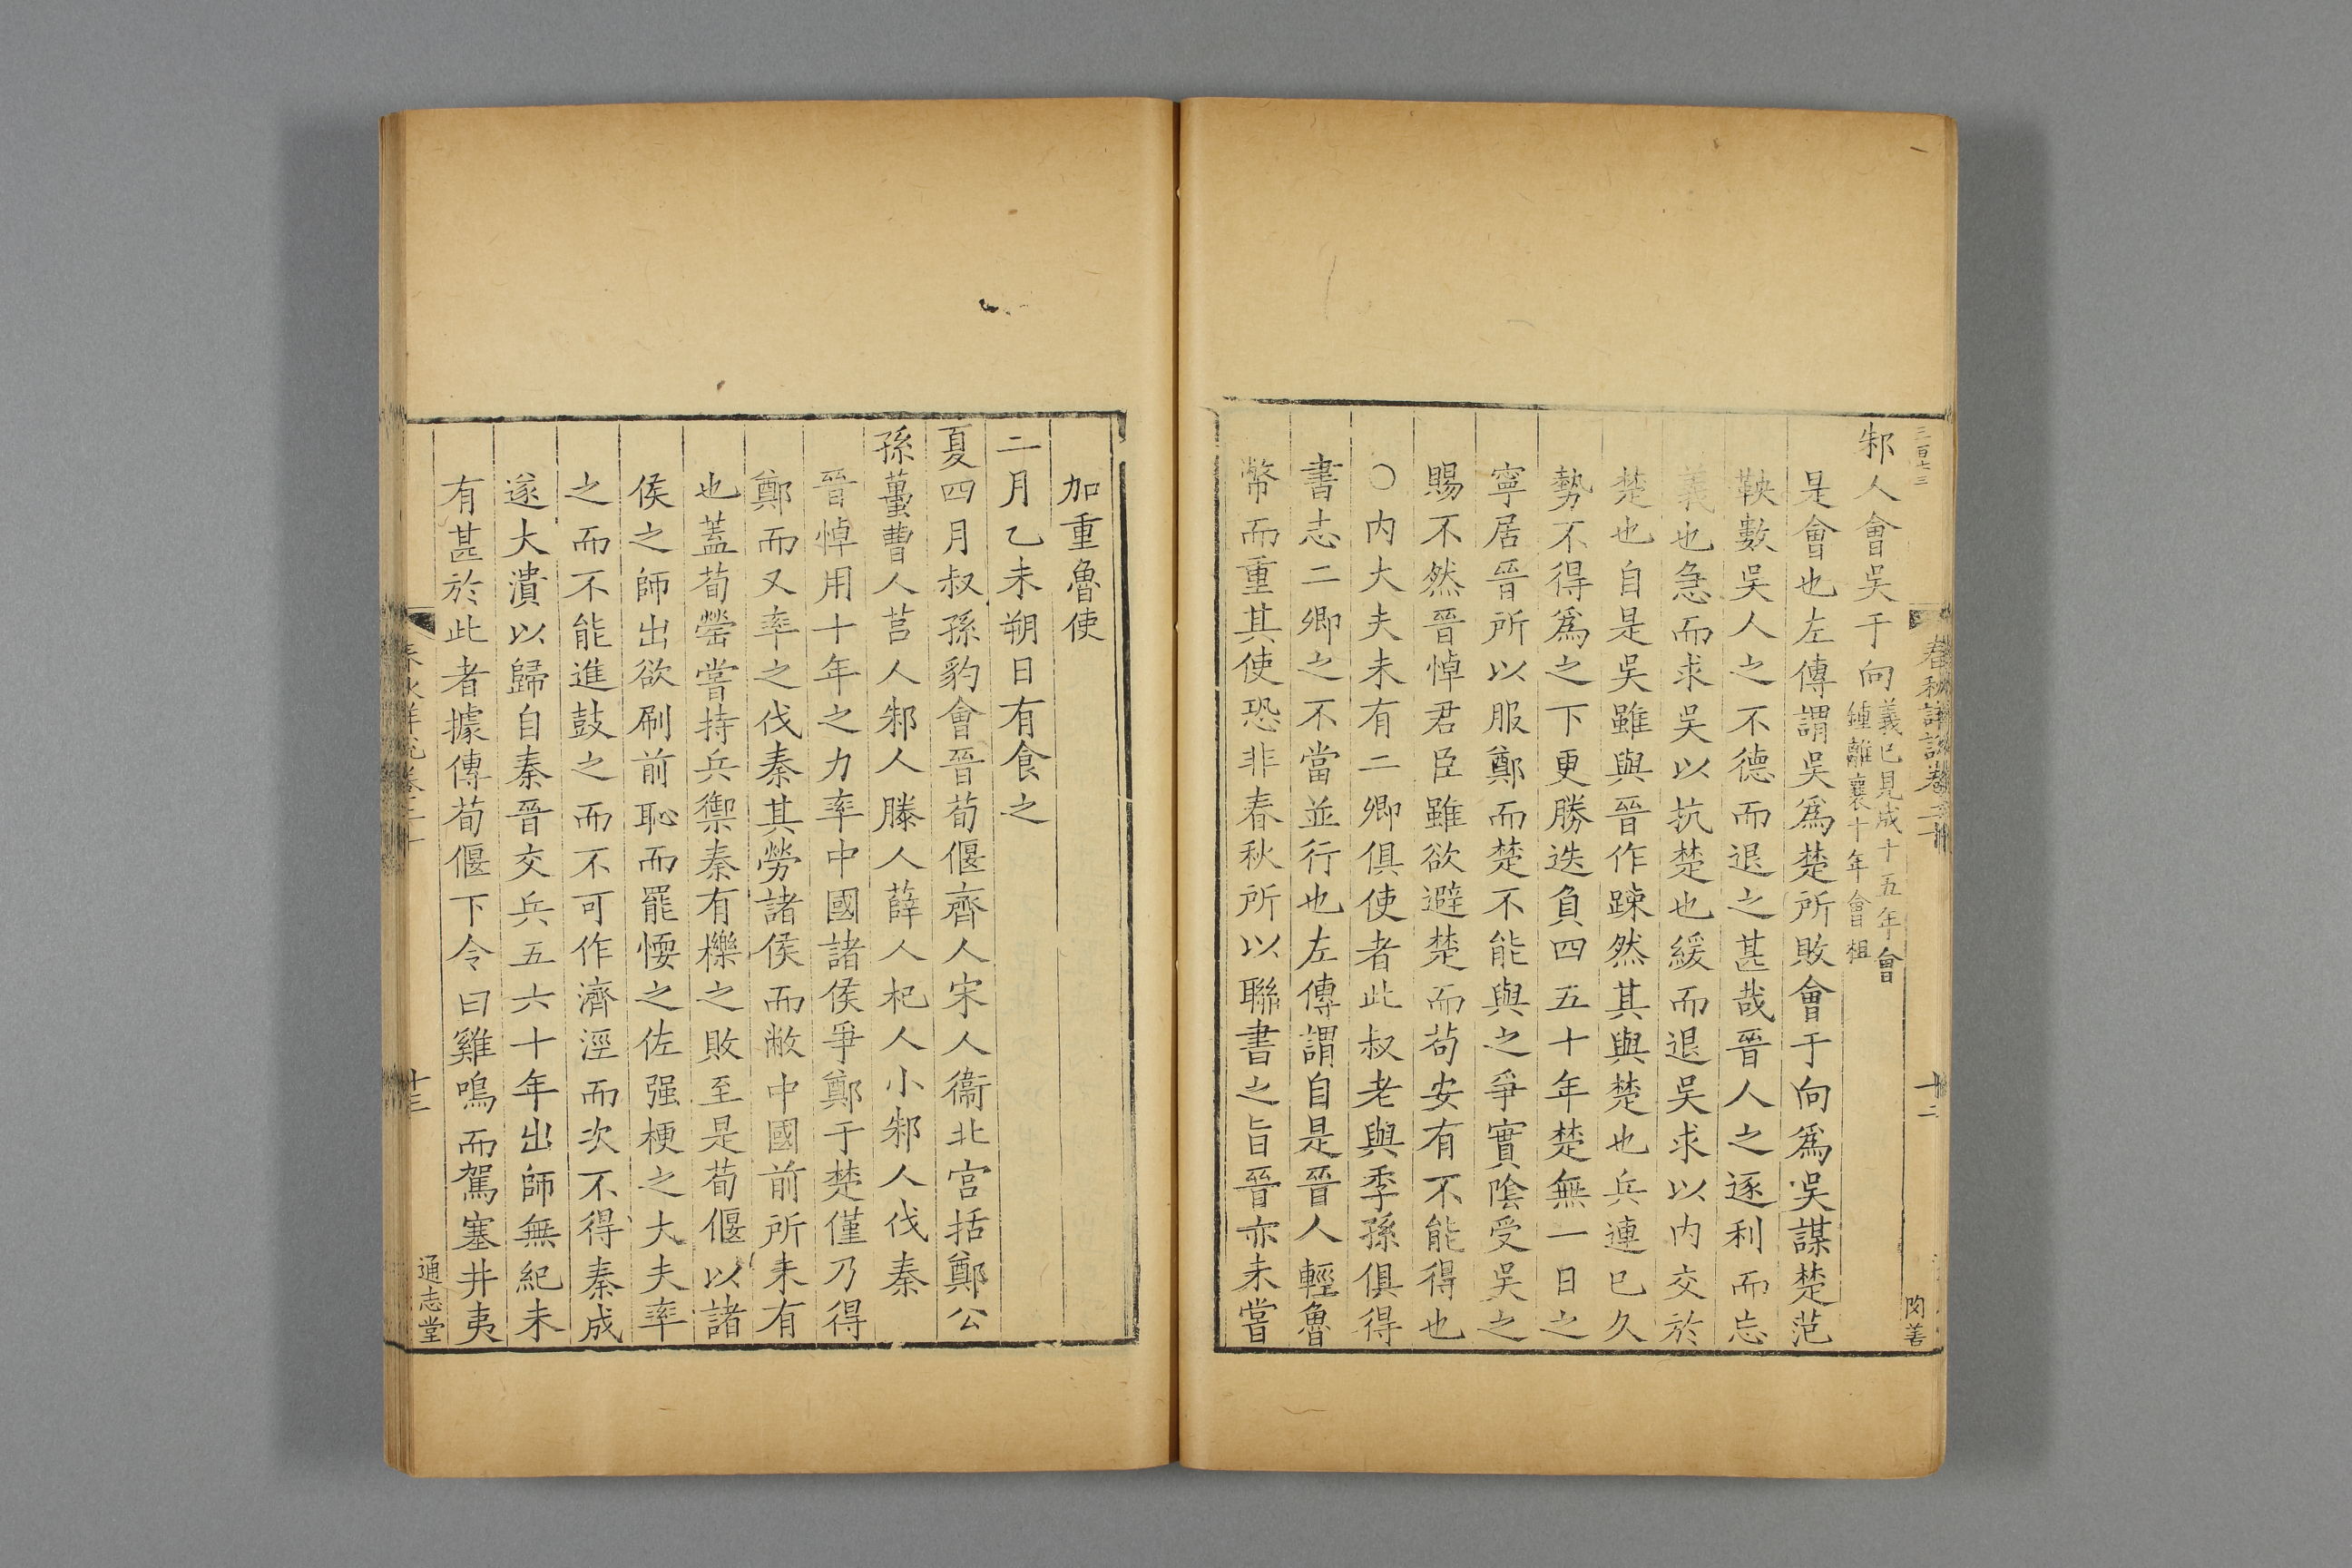 三百七十三
春秋詳說卷二十
十二
閔善
邾人會吳于向義已見成十五年會
鍾離襄十年會柤
是會也左傳謂吳爲楚所敗會于向爲吳謀楚范
鞅數吳人之不德而退之甚哉晉人之逐利而忘
義也急而求吳以抗楚也緩而退吳求以内交於
楚也自是吳雖與晉作踈然其與楚也兵連已久
勢不得爲之下更勝迭負四五十年楚無一日之
寧居晉所以服鄭而楚不能與之爭實陰受吳之
賜不然晉悼君臣雖欲避楚而苟安有不能得也
○内大夫未有二卿俱使者此叔老與季孫俱得
書志二卿之不當並行也左傳謂自是晉人輕魯
幣而重其使恐非春秋所以聯書之旨晉亦未嘗
加重魯使
二月乙未朔日有食之
夏四月叔孫豹會晉荀偃齊人宋人衞北宮括鄭公
孫蠆曹人莒人邾人滕人薛人杞人小邾人伐秦
晉悼用十年之力率中國諸侯爭鄭于楚僅乃得
鄭而又率之伐秦其勞諸侯而敝中國前所未有
也蓋荀罃嘗持兵禦秦有櫟之敗至是荀偃以諸
侯之師出欲刷前恥而罷愞之佐强梗之大夫率
之而不能進鼓之而不可作濟涇而次不得秦成
遂大潰以歸自秦晉交兵五六十年出師無紀未
有甚於此者據傳荀偃下令曰雞鳴而駕塞井夷
春秋詳說卷二十
十三
通志堂